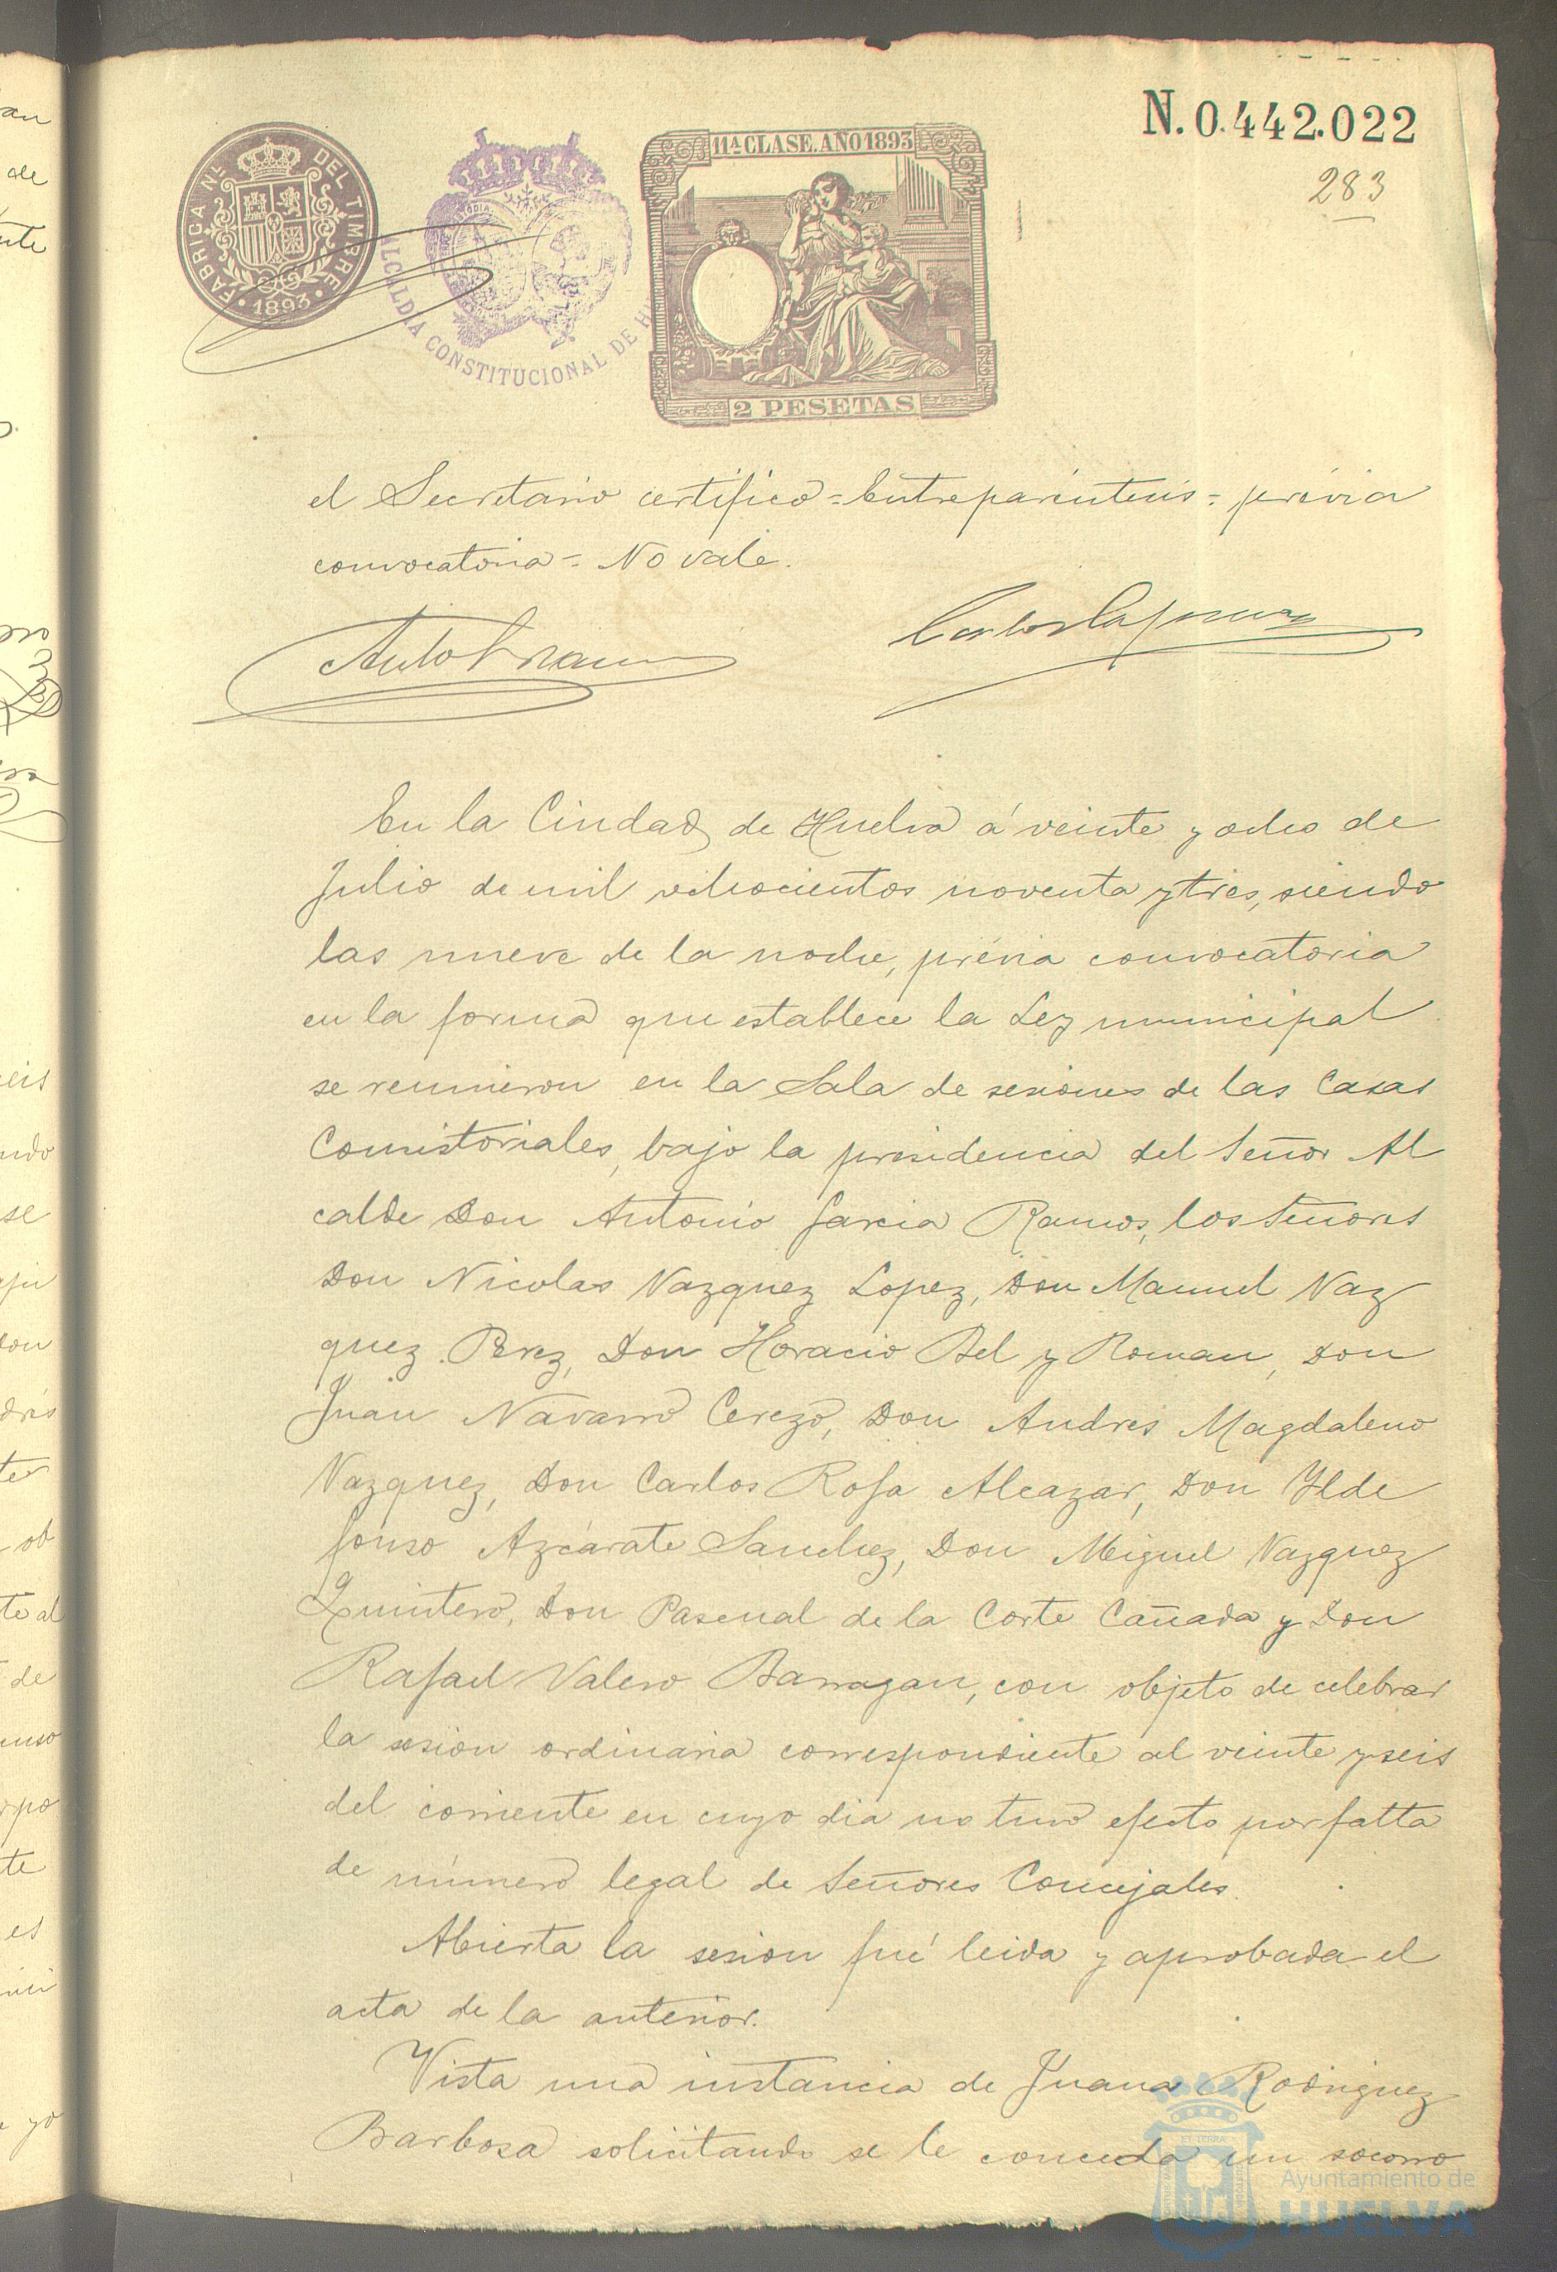 N. 0.442.022
283
FABRICA Nal. DEL TIMBRE
1893
ALCALDIA CONSTITUCIONAL DE H
11ª CLASE. AÑO 1893
2 PESETAS
el Secretario certifico = Entreparéntesis = prévia
convocatoria = No vale.
En la Ciudad de Huelva á veinte y ocho de
Julio de mil ochocientos noventa y tres, siendo
las nueve de la noche, prévia convocatoria
en la forma que establece la Ley municipal
se reunieron en la Sala de sesiones de las Casas
Consistoriales, bajo la presidencia del Señor Al
calde Don Antonio Garcia Ramos, los Señores
Don Nicolas Vazquez Lopez, Don Manuel Vaz
quez Perez, Don Horacio Bel y Roman, Don
Juan Navarro Cerezo, Don Andres Magdaleno
Vazquez, Don Carlos Rofa Alcazar, Don Ylde
fonso Azcárate Sanchez, Don Miguel Vazquez
Quintero, Don Pascual de la Corte Cañada y Don
Rafael Valero Barragan, con objeto de celebrar
la sesion ordinaria correspondiente al veinte y seis
del corriente en cuyo dia no tuvo efecto por falta
de número legal de Señores Concejales.
Abierta la sesion fué leida y aprobada el
acta de la anterior.
Vista una instancia de Juana Rodriguez
Barbosa solicitando se le conceda un socorro
Ayuntamiento de
HUELVA